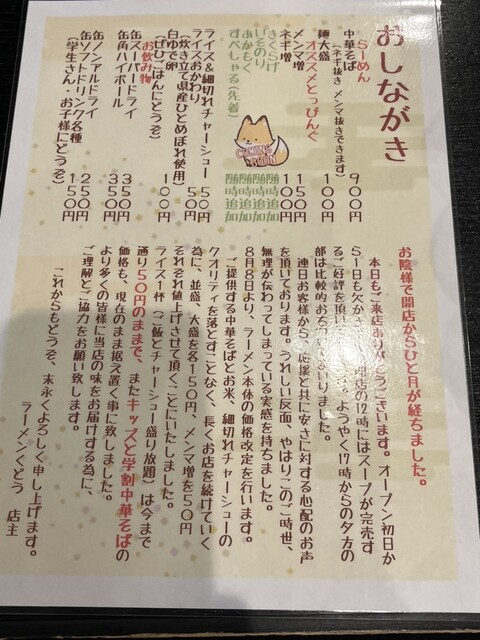 おしながき
らーめん
中華そば 900円
(ネギ抜き メンマ抜きできます)
麺大盛 100円
オススメとっぴんぐ
メンマ増 150円
ネギ増 100円
きくらげ 随時追加
いそのり 随時追加
あかもく 随時追加
すぺしゃる(先着) 随時追加
ライス&細切れチャーシュー 50円
ライスおかわり 50円
(炊き立て県産ひとめぼれ使用)
白ゆで卵 100円
(ぜひごはんにどうぞ)
お飲み物
缶スーパードライ 350円
缶角ハイボール 350円
缶ノンアルドライ 250円
缶ソフトドリンク各種 150円
(学生さん・お子様にどうぞ)
お陰様で開店からひと月が経ちました。
本日もご来店ありがとうございます。オープン初日か
ら1日も欠かさ
店の12時にはスープが完売す
るご好評を頂い
ようやく17時からの夕方の
部は比較的お
いりました。
連日お客様から、応援と共に安さに対する心配のお声
を頂いております。うれしい反面、やはりこのご時世、
無理が伝わってしまっている実感を持ちました。
8月8日より、ラーメン本体の価格改定を行います。
ご提供する中華そばとお米、細切れチャーシューの
クオリティを落とすことなく、長くお店を続けていく
為に、並盛、大盛を各150円、メンマ増を50円
それぞれ値上げさせて頂くことにいたしました。
ライス1杯(ご飯とチャーシュー盛り放題)は今まで
通り50円のままで、またキッズと学割中華そばの
価格も、現在のまま据え置く事に致しました。
より多くの皆様に当店の味をお届けする為に、
ご理解とご協力をお願い致します。
これからもどうぞ、末永くよろしく申し上げます。
ラーメンくどう 店主